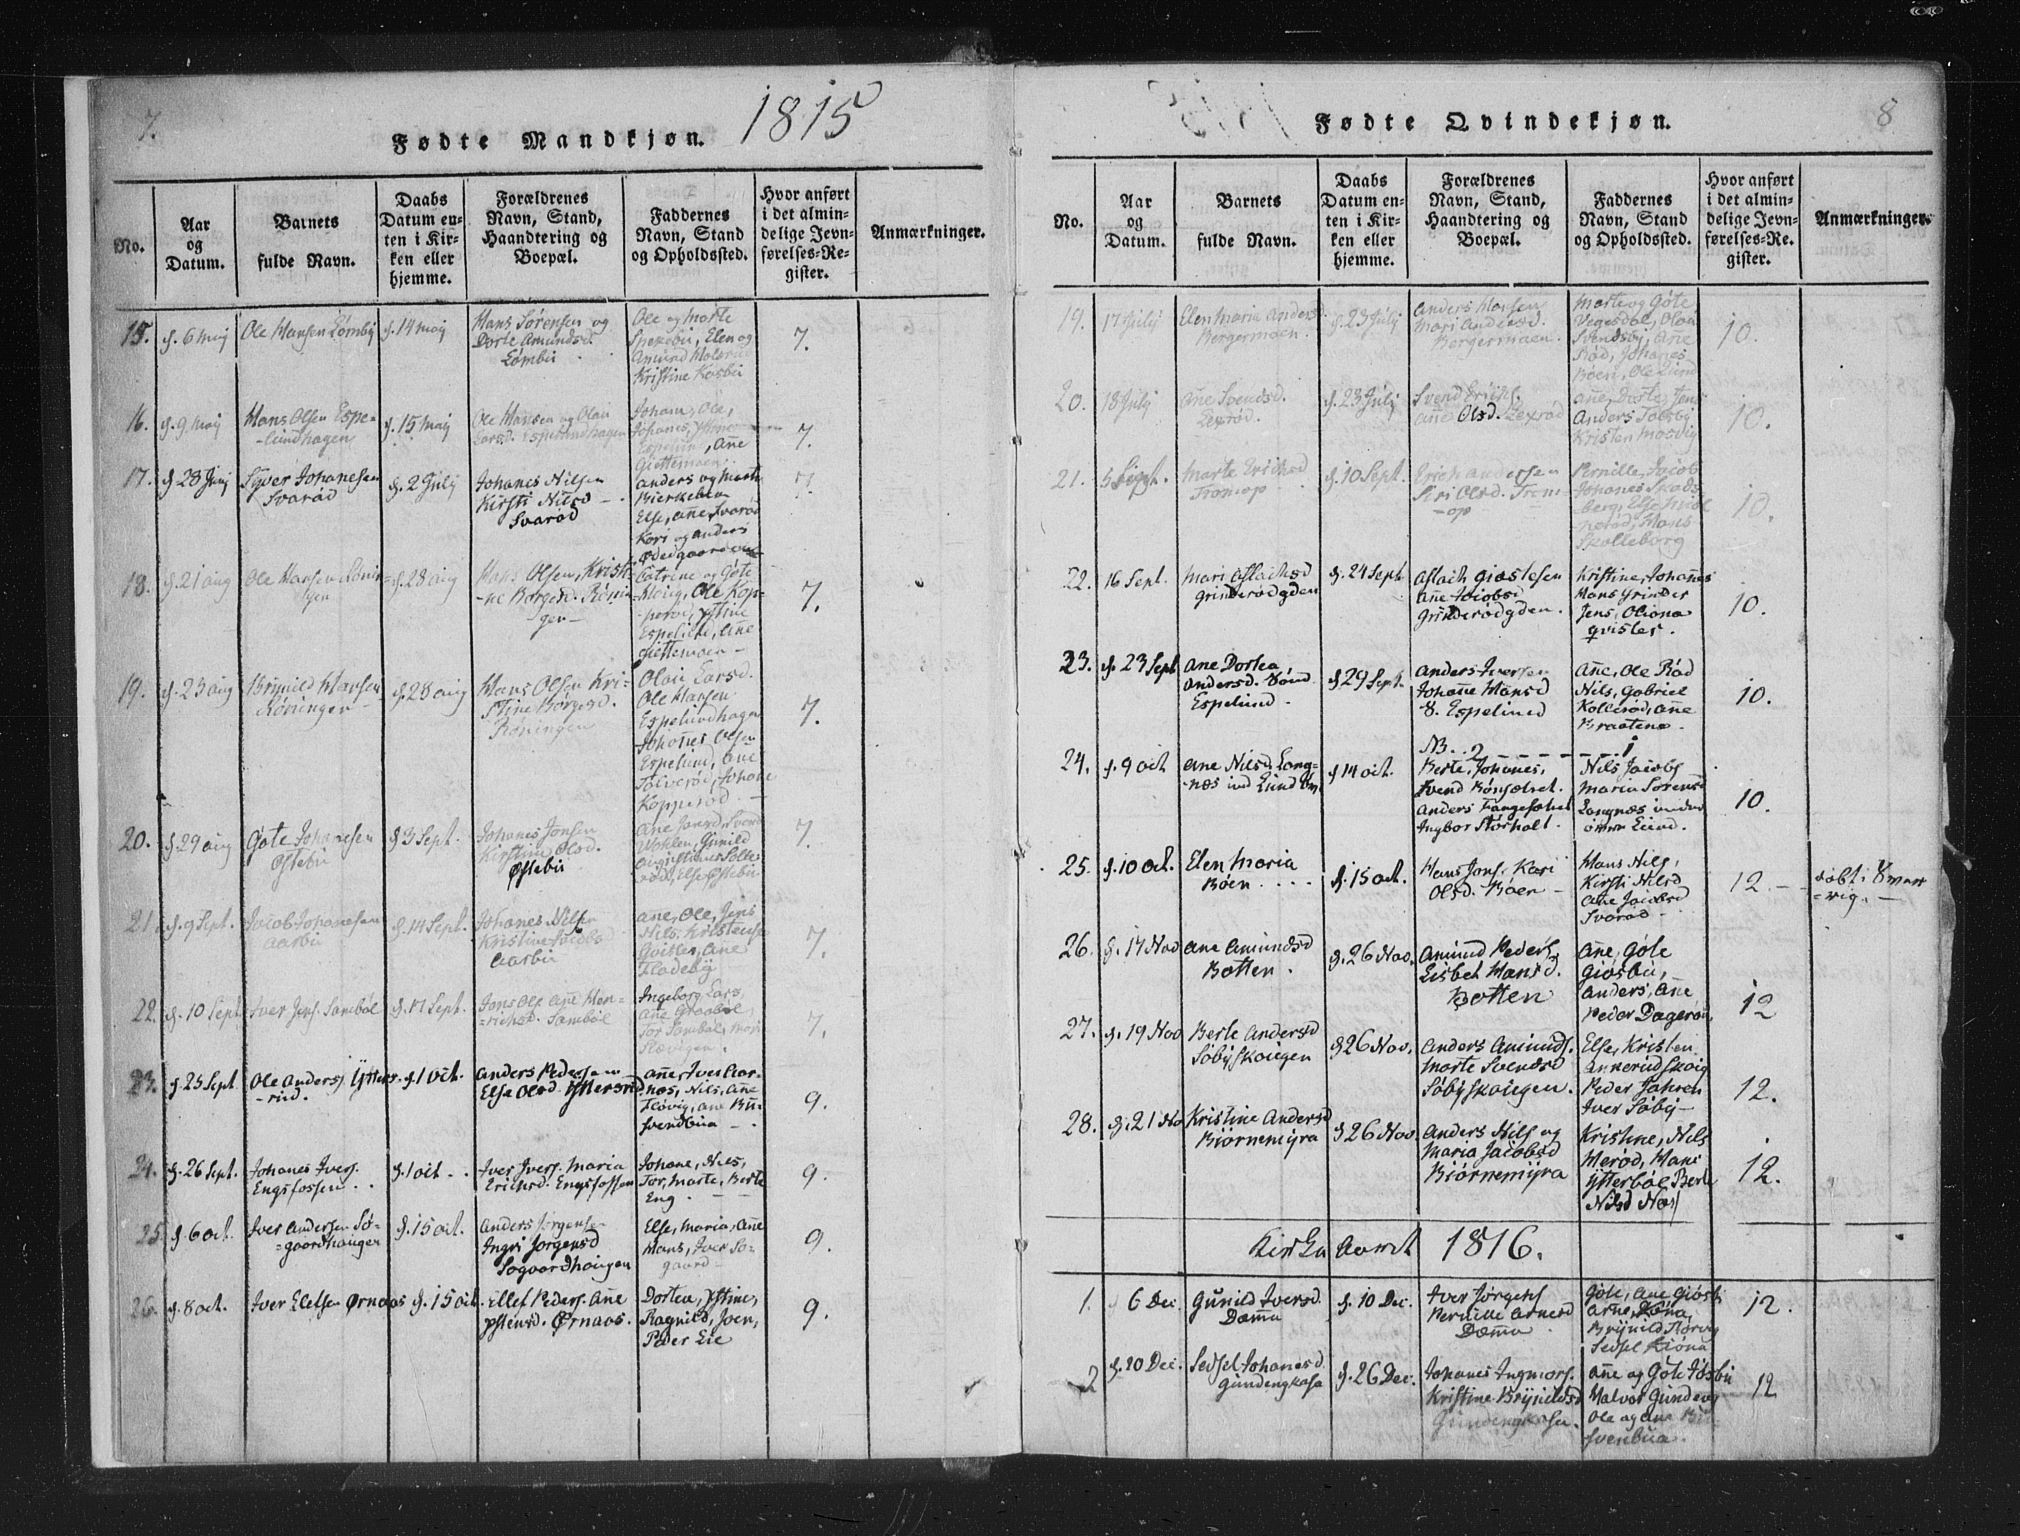 7.
Fødte Mandkjøn. 1815
No.
Aar
og
Datum.
Barnets
fulde Navn.
Daabs
Datum en-
ten i Kir-
ken eller
hjemme.
Forældrenes
Navn, Stand,
Haandtering og
Boepæl.
Faddernes
Navn, Stand
og Opholdssted.
Hvor anført
i det almin-
delige Jevn-
førelses-Re-
gister.
Anmærkninger.
15. d. 6 maj
Ole Hansen Lømbÿ
d. 14 maj
Hans Sørensen og
Dorte Amundsd.
Lømbÿ
Ole og Marte
Elen og
Kristine Kasbu
7.
16. d. 9 maj
Hans Olsen Espe-
-lundhagen
d. 15 maj
Ole Hansen og Olau
Larsd. Espelundhagen
Johans, Ole,
Espelun, Ane
Giettemoen
7.
17. d. 28 Junj
Syver Johanesen
Svarød
d. 2 Julj
Johanes Nilsen
Kirsti Nilsd
Svarød
Anders og Marth
Birkebem
Else, Ane Svarød
Kari og Anders
7.
18. d. 21 aug
Ole Hansen Rønin-
gen
d. 28 aug
Hans Olsen, Kristi-
-ne Børgesd. Rønin-
gen
Catrine og Gote
Haug, Ole Kop-
perød, Ystine
Espelund, Ane
Giettemoen
7.
19. d. 23 aug
Brynild Hansen
Røningen
d. 28 aug
Hans Olsen Kri-
stine Børgesd.
Røningen
Olau Larsd.
Ole Hansen
Espelundhagen
Johanes Olsen
Espelund, Ane
Tolverød, Johane
Kopperød
7.
20. d. 29 aug
Gote Johanesen
Østebu
d. 3 Sept.
Johanes Jonsen
Kirstine Olsd.
Østebu
Gunild
Else Østebu
7.
21. d. 9 Sept.
Jacob Johanesen
Aarbu
d. 14 Sept.
Johanes Nilsen
Kristine Jacobsd
Aarbu
Ane, Ole, Jens
Nils, Kristense
Qvisler, Ane
Fladebÿ
7.
22. d. 10 Sept
Iver Jens. Sambøl
d. 17 Sept.
Jens Ole Ane Hen-
richsd. Sambøl
Ingeborg, Lars,
Ane Graabøl,
Tor Sambøl, Mari
7.
23. d. 25 Sept
Ole Anders. Ytters-
-rud.
d. 1 Oct.
Anders Pedersen
Else Olsd. Yttersrud.
Ane, Iver Aar-
næs, Nils, Ane
Fløvig, Ane Bu-
svendbua
9.
24. d. 26 Sept.
Johanes Ivers.
Engsfossen
d. 1 oct
Iver Ivers. Maria
Erichsd. Engsfossen
Johane, Nils,
Tor, Marte, Berte
Eng.
9.
25. d. 6 oct.
Iver Andersen Sø-
=gaardhaugen
d. 15 oct.
Anders Jørgense
Ingri Jørgensd
Søgaardhaugen
Else, Maria, Ane
Hans, Iver Sø-
gaard
9.
26. d. 8 oct.
Iver Elefsen Ørnaas
d. 15 oct.
Ellef Peders. Ane
Ystensd. Ørnaas.
Dortea, Ystine,
Ragnild, Joen,
Peder Eie
9.
8
Fødte Qvindekjøn.
No.
Aar
og
Datum.
Barnets
fulde Navn.
Daabs
Datum en-
ten i Kir-
ken eller
hjemme.
Forældrenes
Navn, Stand,
Haandtering og
Boepæl.
Faddernes
Navn, Stand
og Opholdssted.
Hvor anført
i det almin-
delige Jevn-
førelses-Re-
gister.
Anmærkninger.
19. 17 Julj
Elen Maria Andersd.
Bergermoen.
d. 23 Julj
Anders Hansen
Mari Andersd.
Bergermoen.
Marte og Gote
Vegesdal, Olau
Svendsby, Ane
Rød, Johanes
Bøen, Ole Lund
10.
20. 18 Julj
Ane Svendsd.
Lexrød.
d. 23 Julj
Svend Erichs.
Ane Olsd. Lexrød
Ane, Dorte, Jens
Anders Tolsbÿ
Kristen Mosvig
10.
21. 5 Sept.
Marte Erichsd
Tromop
d. 10 Sept.
Erich Andersen
Siri Olsd. Trom-
-op
Pernille, Jacob
Johanes Skads-
berg, Else
Hans
Skolleborg
10.
22. 16 Sept.
Mari Aslachsd
Grinderødgden
d. 24 Sept
Aslach Giøstesen
Ane Jacobsd
Grinderødgden.
Kristine, Johanes
Hans Grinder
Jens, Oliana
Qvisler.
10.
23. d. 23 Sept
Ane Dortea
Andersd. Sønd
Espelund.
d 29 Sept.
Anders Iversen
Johane Hansd
S. Espelund
Ane, Ole Rød
Nils, Gabriel
Kollerød, Ane
Braatene.
10.
24. d. 9 oct
Ane Nilsd Lang-
=næs und Lund
d 14 oct.
NB. 2
Berte, Johanes,
Svend Bønsætret.
Anders Fangesætret
Ingbor Storholt.
1
Nils Jacobs
Maria Sørensd
Langnæs under
Lund.
10.
25. d. 10 oct.
Elen Maria
Bøen
d. 15 oct.
Hans Jons. Kari
Olsd. Bøen
Hans Nils,
Kirsti Nilsd
Ane Jacobsd
Svarød
12.
døbt i Qvar
=vig.
26. d. 17 Nov
Ane Amundsd
Botten.
d. 26 Nov.
Amund Peders
Lisbet Hansd.
Botten
Ane, Gote
Giøsbu,
Anders, Ane
Peder Dagerøn
12
27. d. 19 Nov
Berte Andersd
Søbÿskougen
d 26 Nov.
Anders Amunds.
Marte Svendsd
Søbÿskougen.
Else, Kristen
Annerudskoug
Peder Jahren
Iver Søbÿ
12.
28. d. 21 No
Kristine Andersd
Biørnemÿra
d 26 Nov.
Anders Nils og
Maria Jacobsd
Biørnemÿra
Kristine, Nils
Merød, Hans
Ytterbøl Berte
Nilsd Næs
12.
Kirke Aaret 1816.
1. 6 Dec.
Gunild Iversd.
Dæmma
d. 10 Dec.
Iver Jørgens
Pernille Arnesd
Dæmma
Gote, Ane Giøst
Arne, Kiøna,
Brÿnild Flørvig
Sedsel Kiøna
12.
2 d. 20 Dec.
Sedsel Johanesd.
Gundengkasa
d. 26 Dec.
Johanes Ingmars.
Kristine Brÿnildsd
Gundengkasa.
Ane og Gote Jøsbu
Halvor Gundeng
Ole og Ane Bu-
svenbua.
12